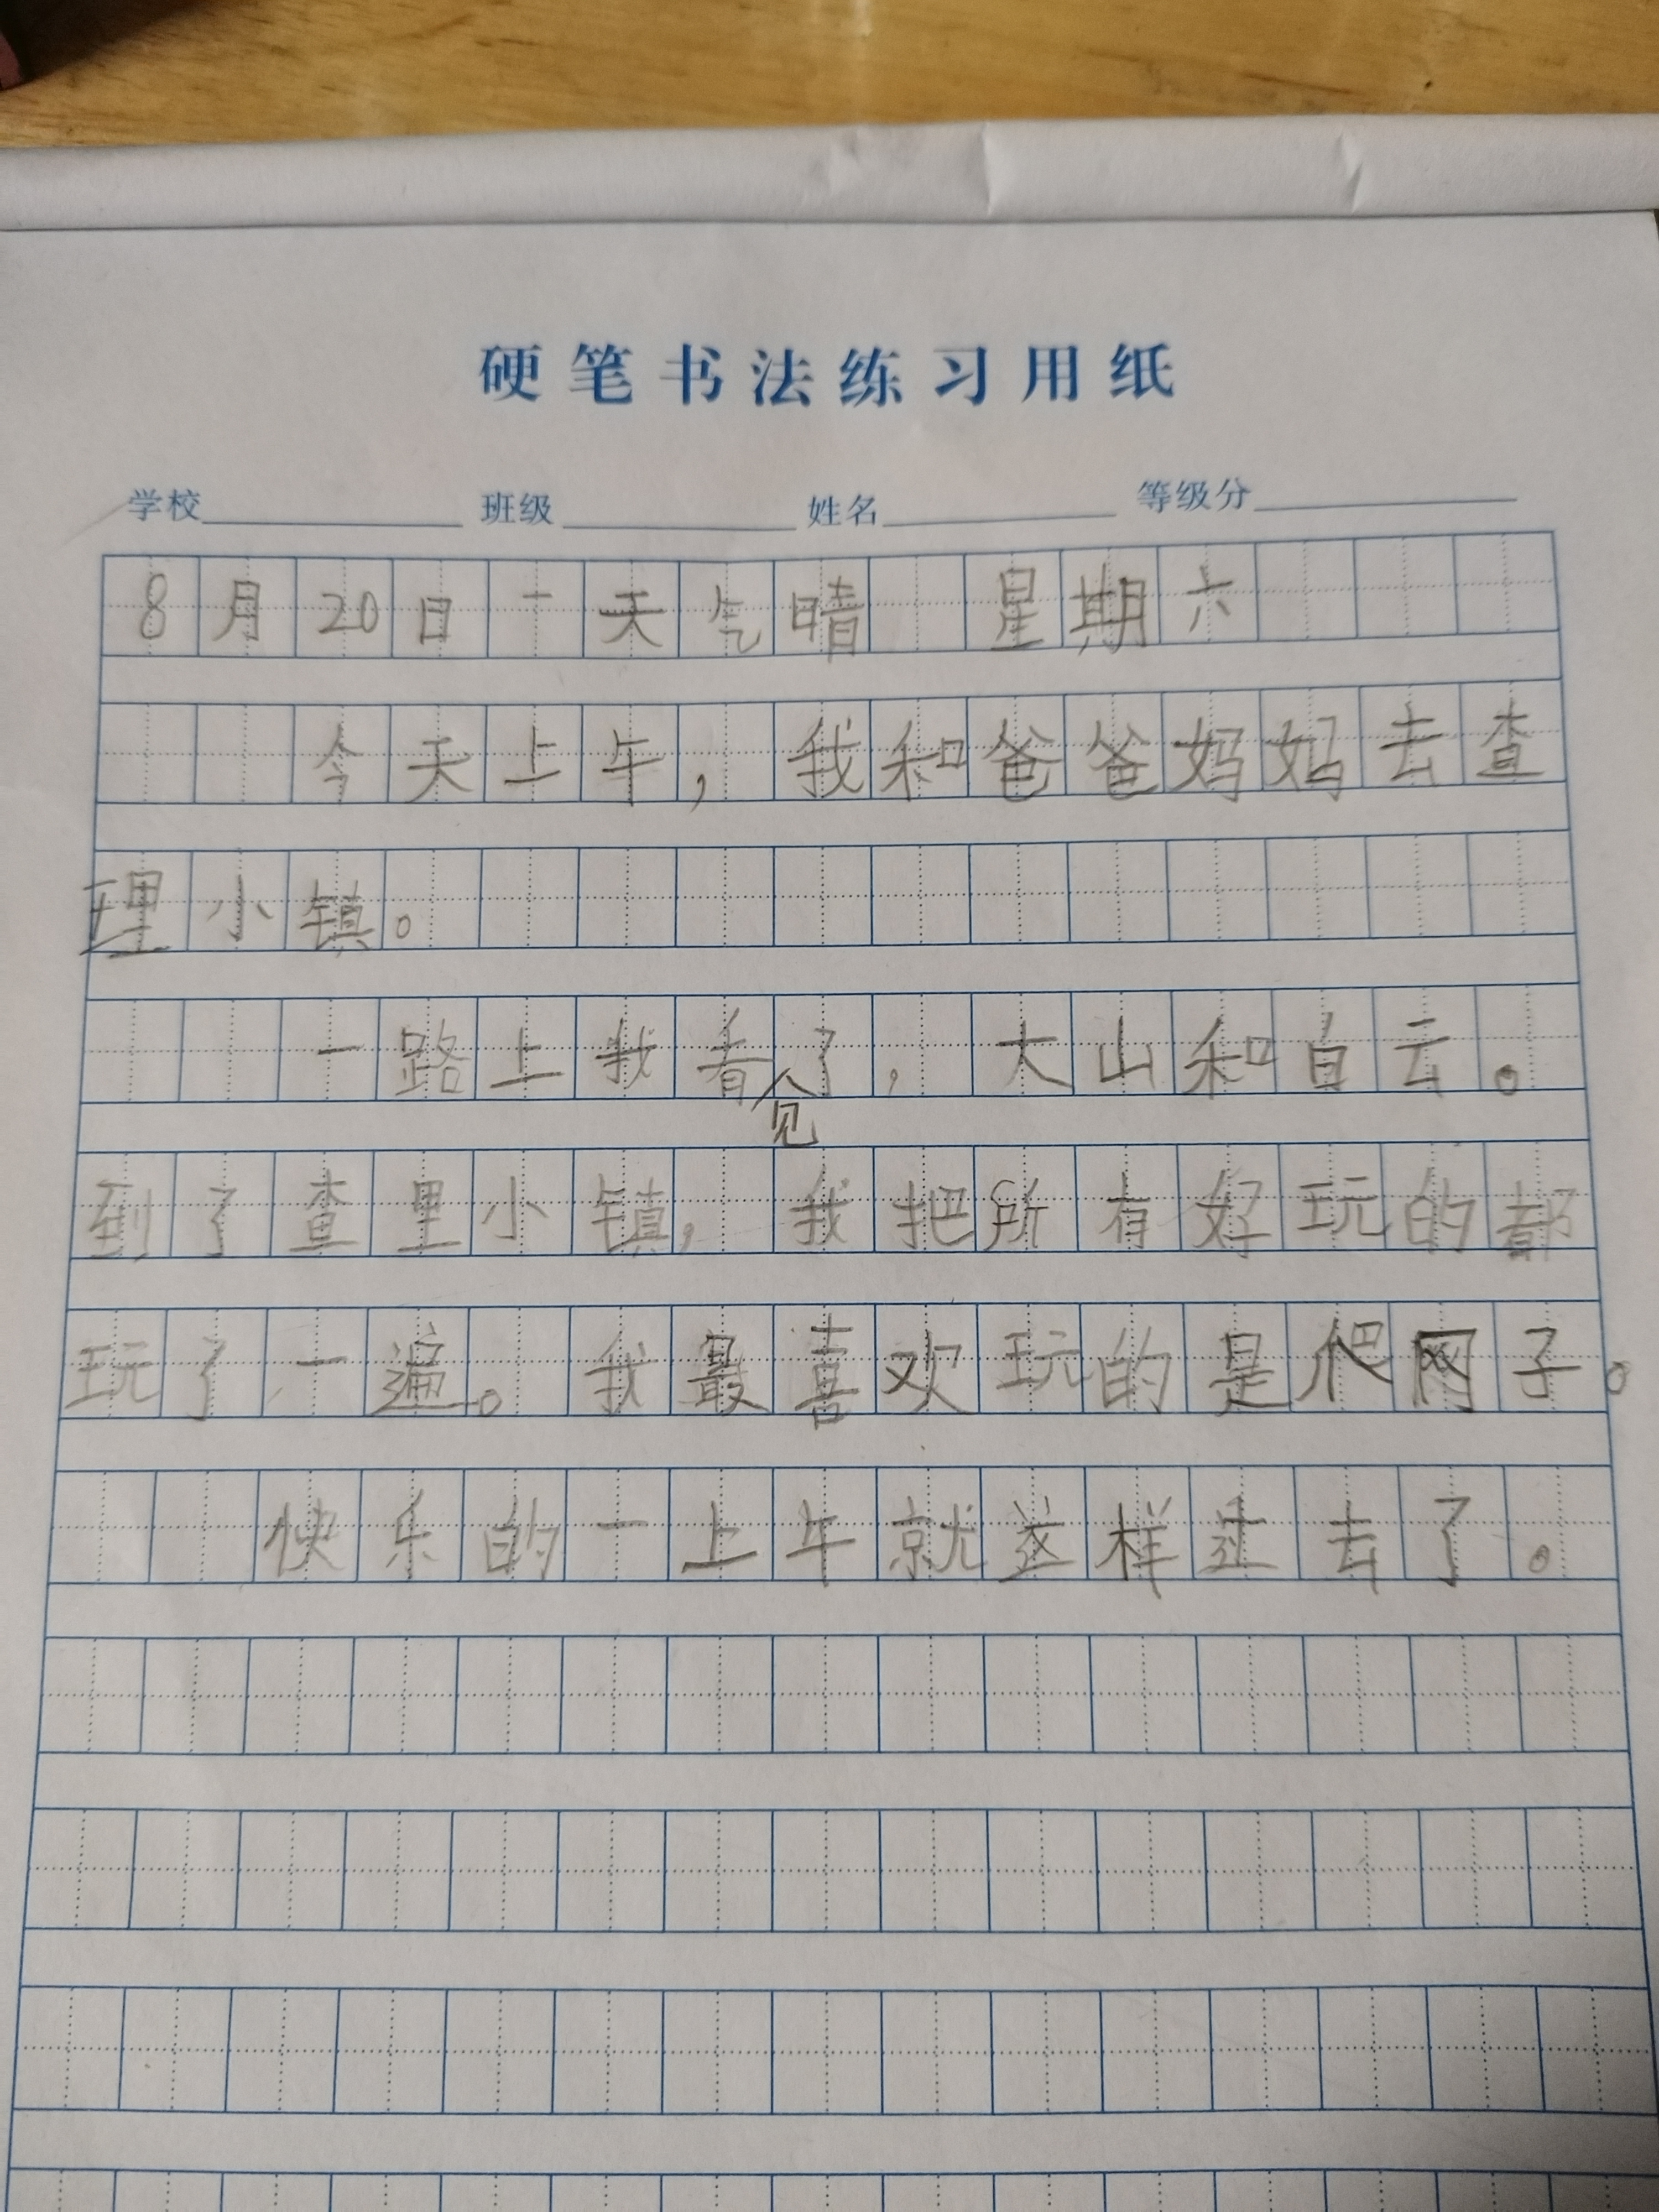 硬笔书法练习用纸
学校 班级 姓名 等级分
8月20日 天气晴 星期六
今天上午，我和爸爸妈妈去查
理小镇。
一路上我看见了，大山和白云。
到了查里小镇，我把所有好玩的都
玩了一遍。我最喜欢玩的是爬网子。
快乐的一上午就这样过去了。